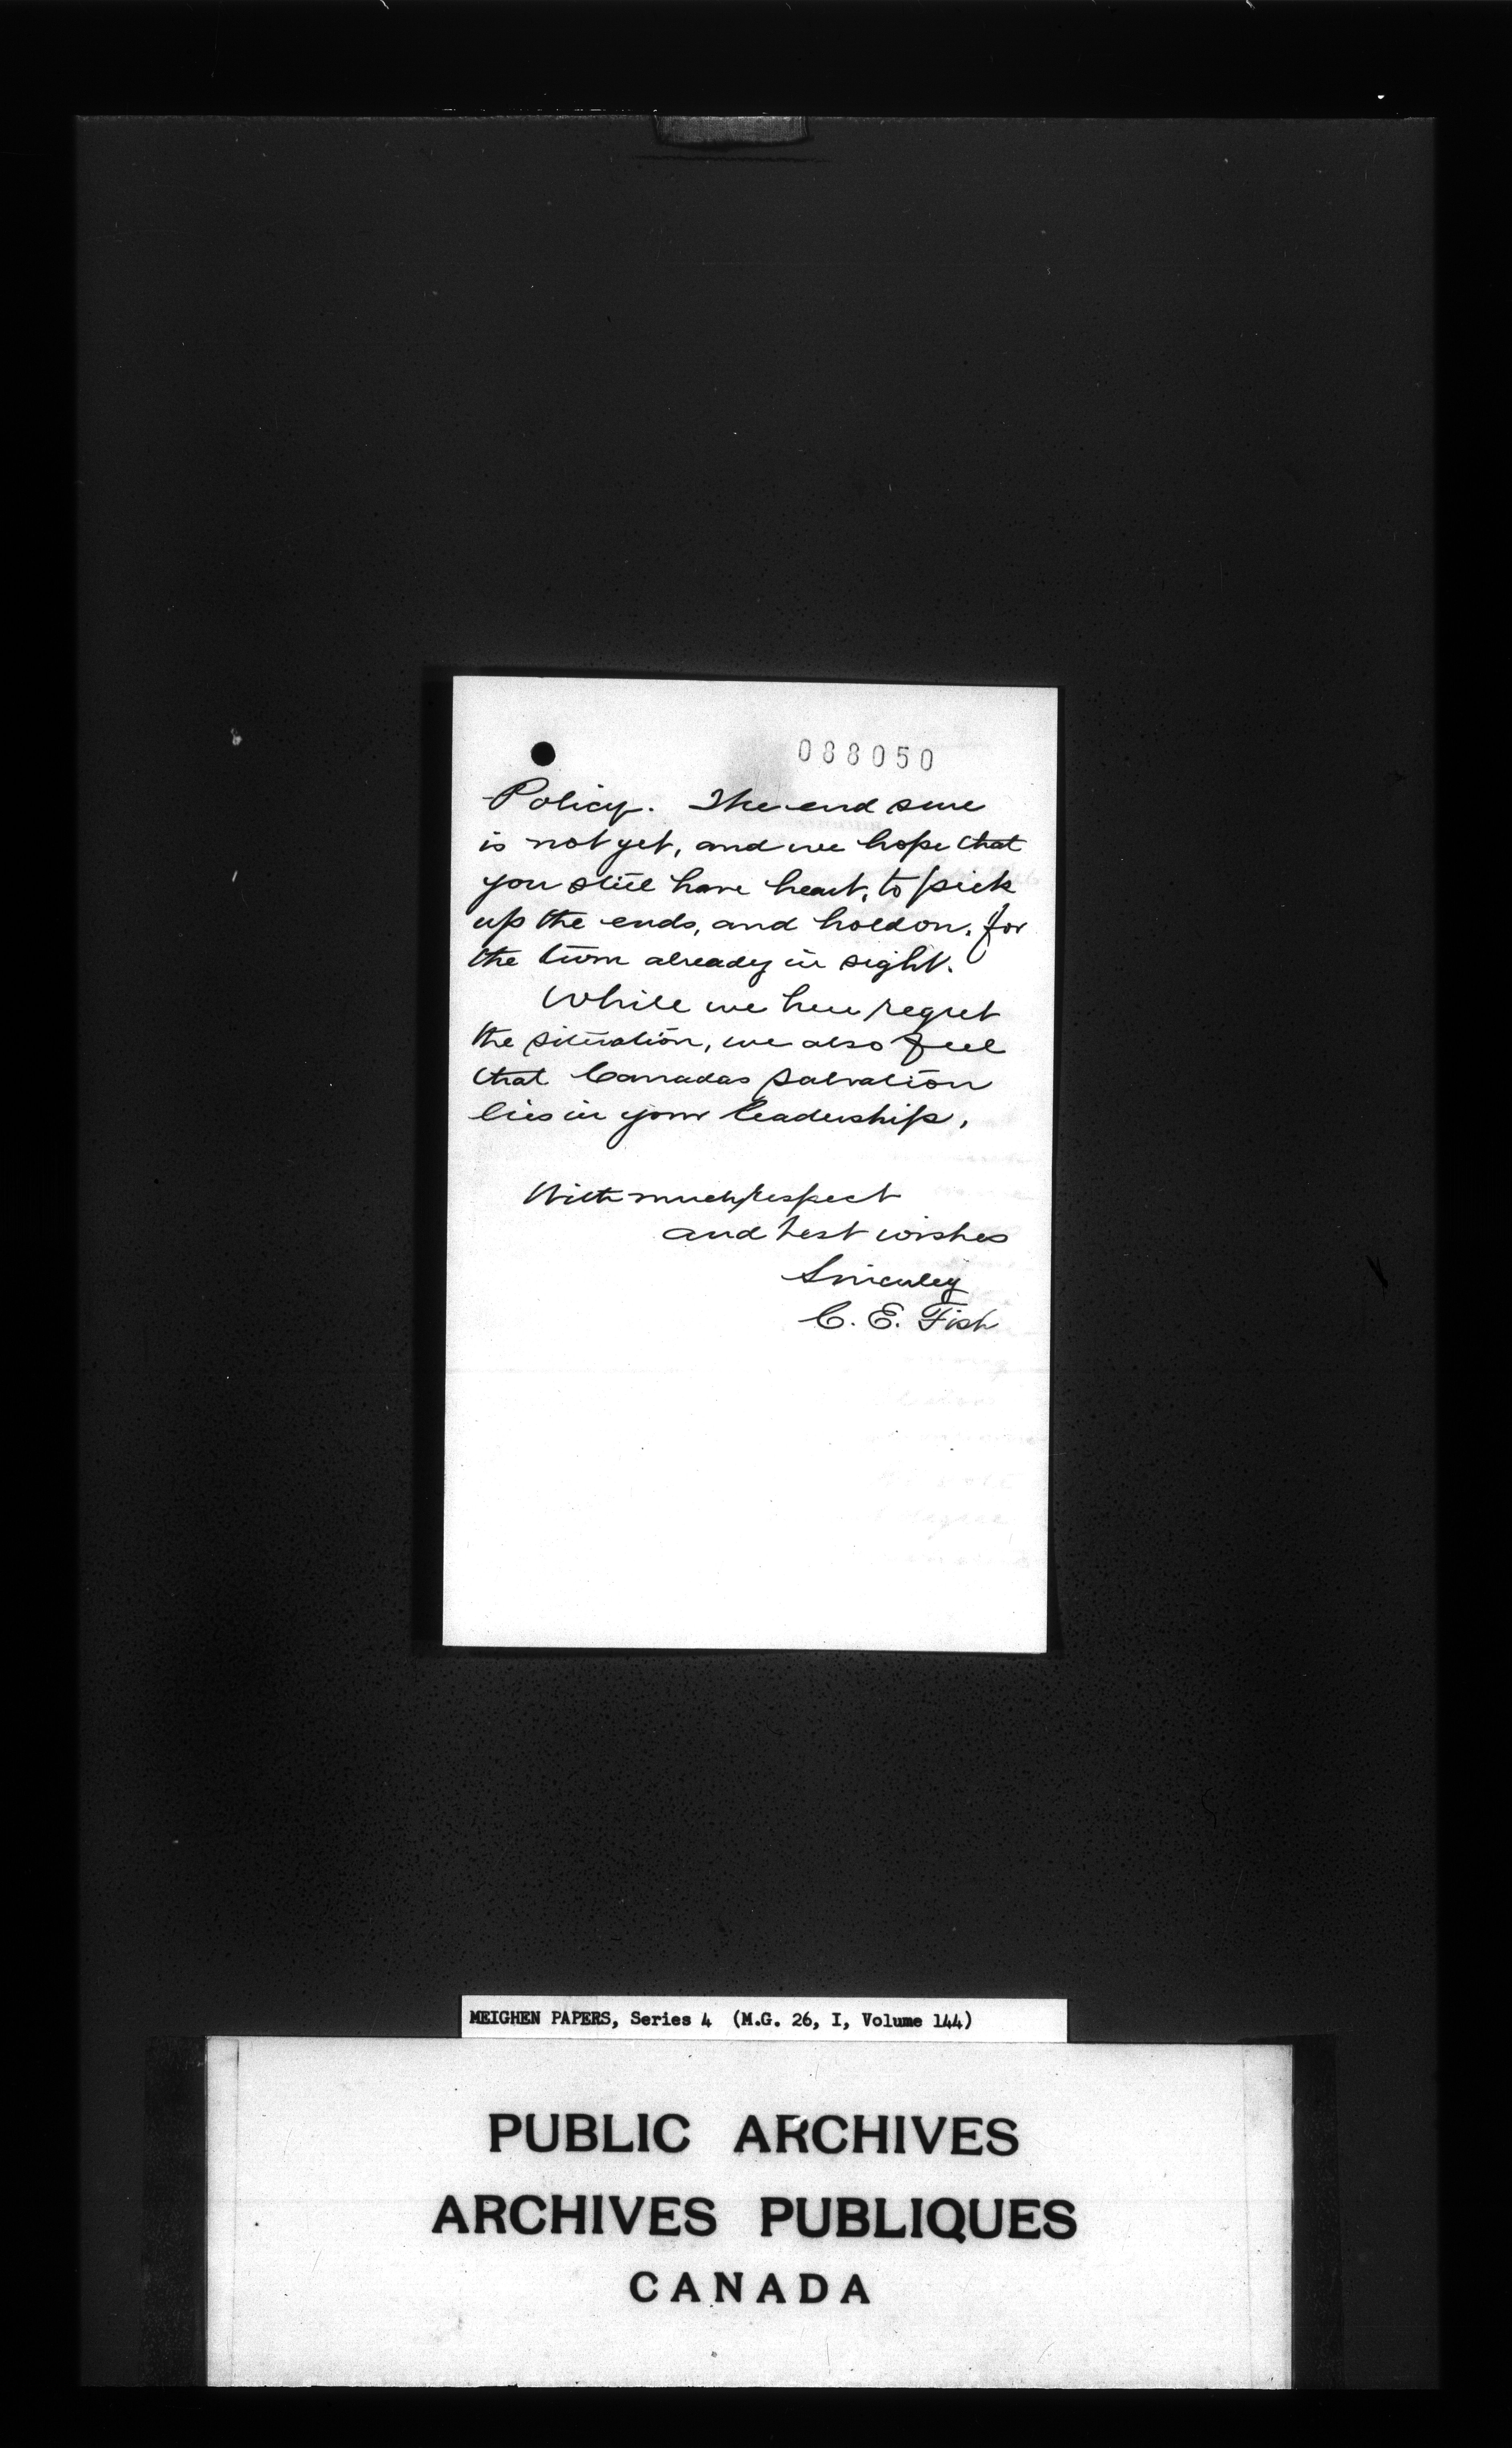 088050
Policy. The end sure
is not yet, and we hope that
you still have heart, to pick
up the ends, and hold on, for
the turn already in sight.
While we here regret
the situation, we also feel
that Canadas salvation
lies in your leadership,
With much respect
and best wishes
Sincerely
C. E. Fish
MEIGHEN PAPERS, Series 4 (M.G. 26, I, Volume 144)
PUBLIC ARCHIVES
ARCHIVES PUBLIQUES
CANADA